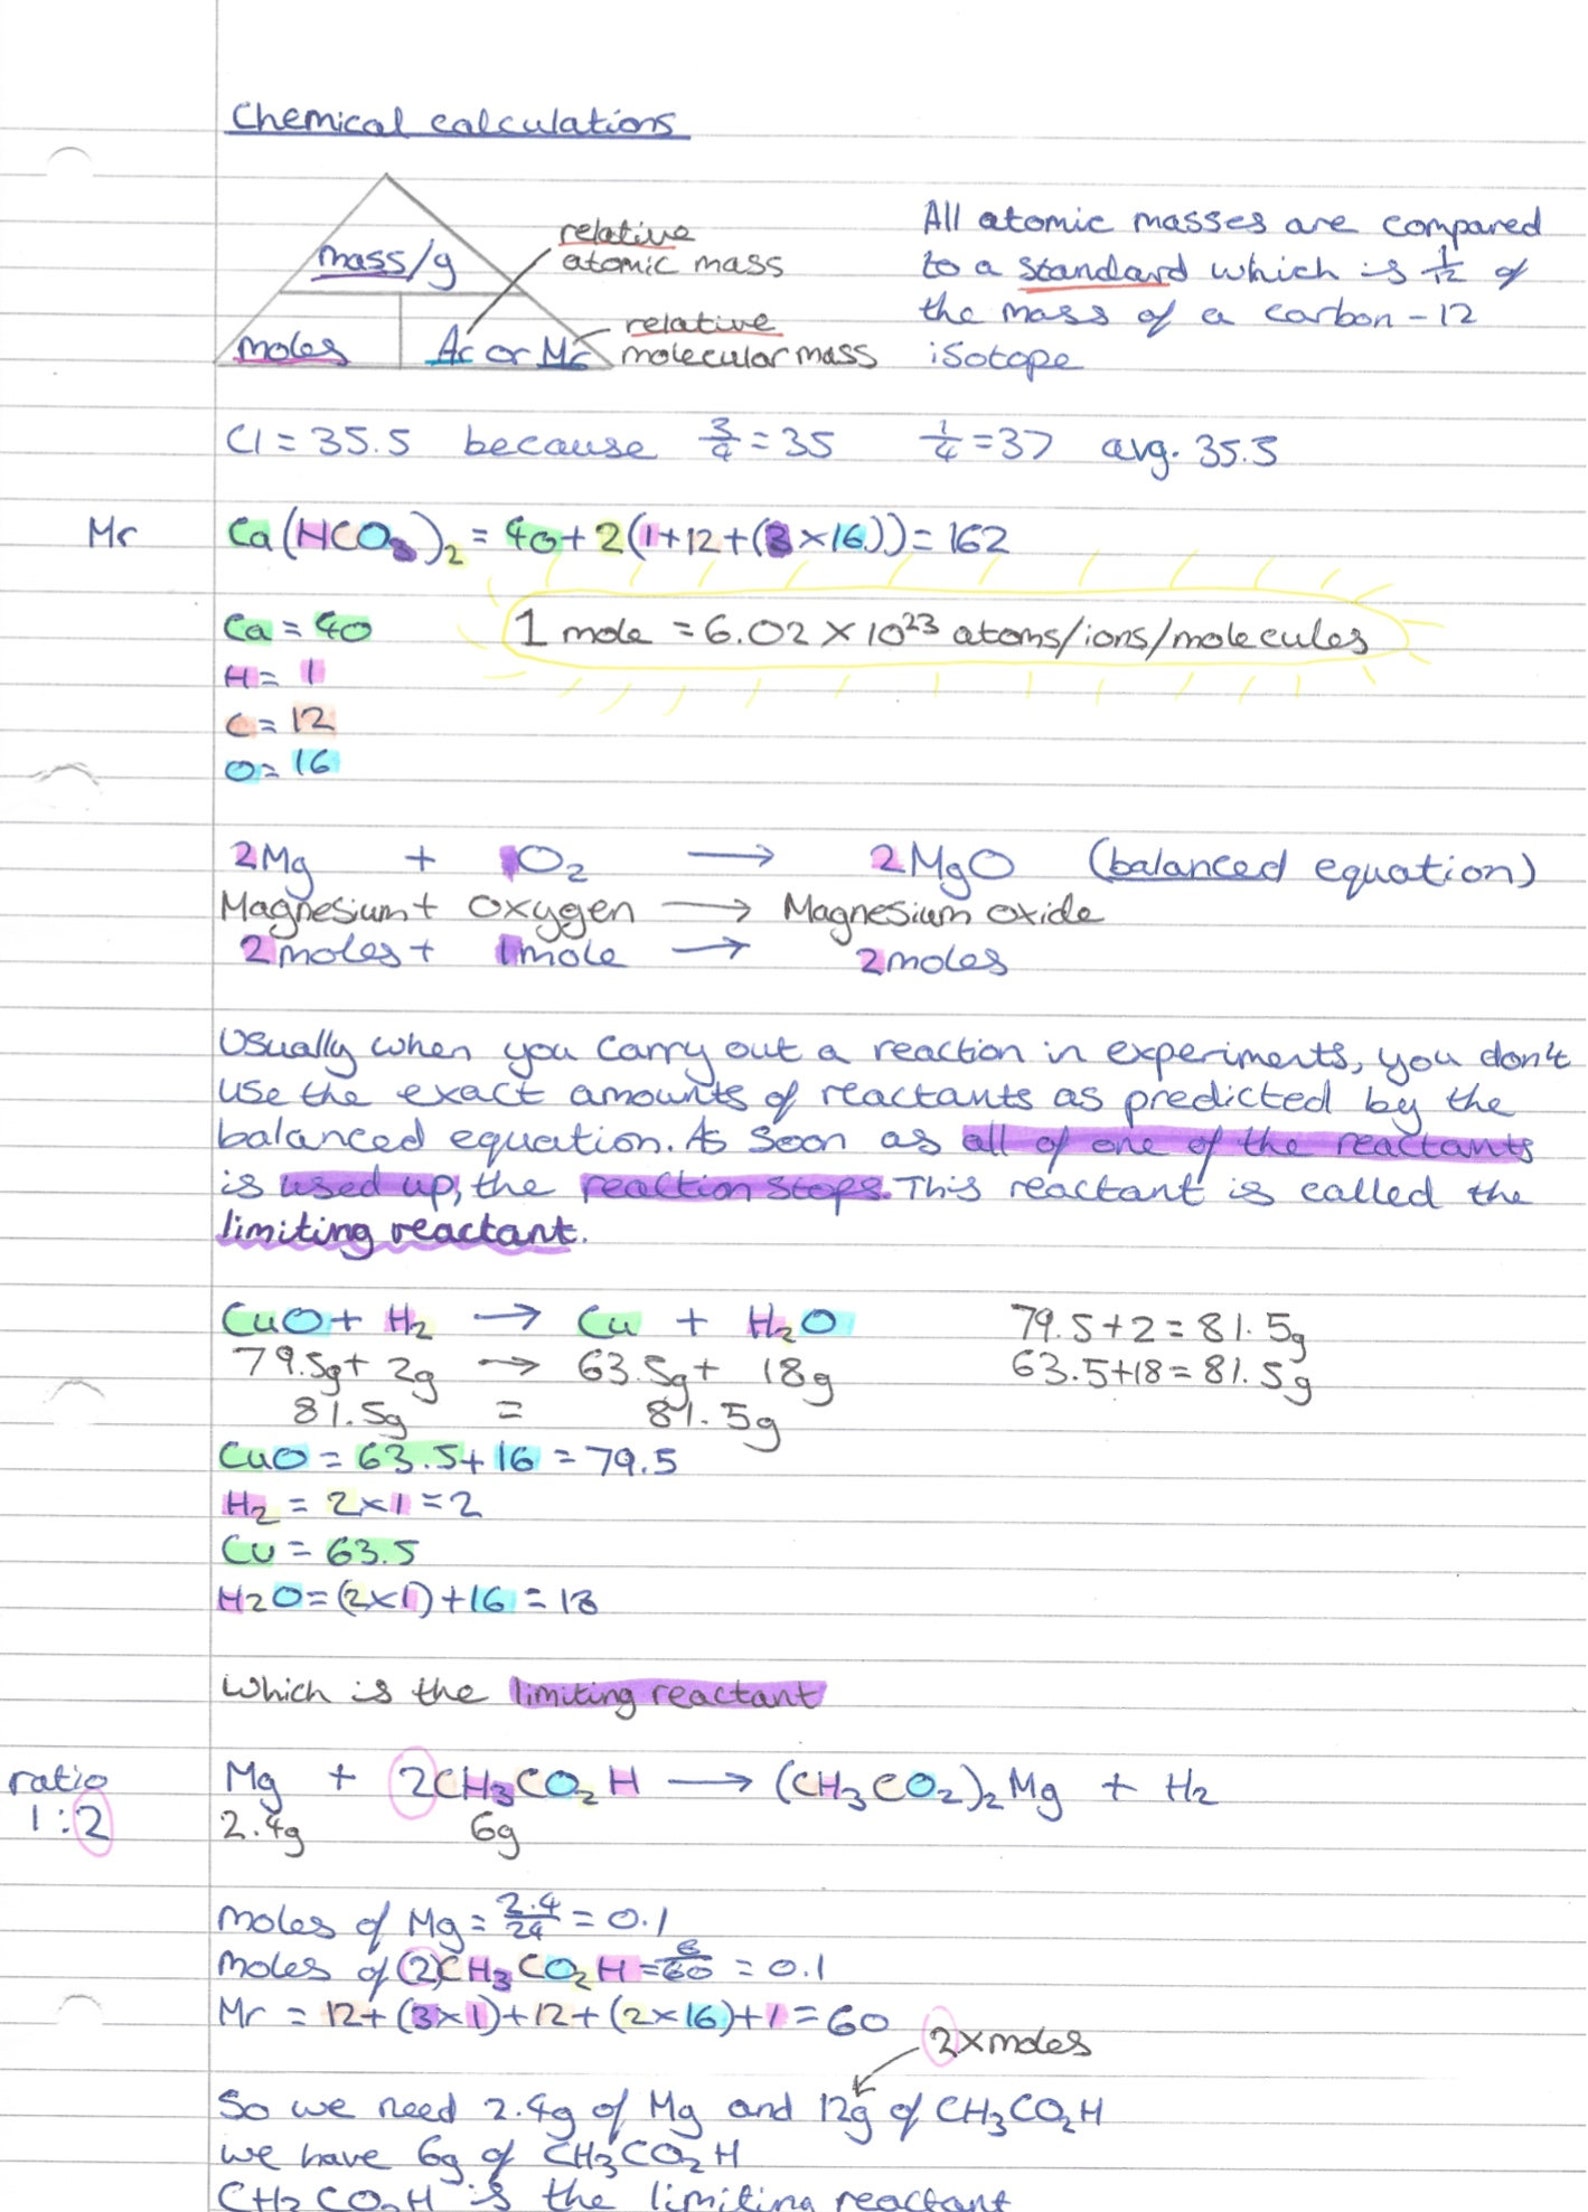 Chemical calculations
mass/g
moles
Ar or Mr
relative
atomic mass
relative
molecular mass
All atomic masses are compared
to a standard which is 1/12 of
the mass of a carbon-12
isotope
Cl = 35.5 because 3/4 = 35 1/4 = 37 avg. 35.5
Mr Ca(HCO₃)₂ = 40 + 2(1+12+(3×16)) = 162
Ca = 40
1 mole = 6.02 × 10²³ atoms/ions/molecules
H = 1
C = 12
O = 16
2Mg + 1O₂ → 2MgO (balanced equation)
Magnesium + oxygen → Magnesium oxide
2 moles + 1 mole → 2 moles
Usually when you carry out a reaction in experiments, you don't
use the exact amounts of reactants as predicted by the
balanced equation. As soon as all of one of the reactants
is used up, the reaction stops. This reactant is called the
limiting reactant.
CuO + H₂ → Cu + H₂O 79.5+2=81.5g
79.5g + 2g → 63.5g + 18g 63.5+18=81.5g
81.5g = 81.5g
CuO = 63.5 + 16 = 79.5
H₂ = 2×1 = 2
Cu = 63.5
H2O = (2×1) + 16 = 18
Which is the limiting reactant
ratio Mg + 2CH₃CO₂H → (CH₃CO₂)₂Mg + H₂
1:2 2.4g 6g
moles of Mg = 2.4/24 = 0.1
Moles of (2)CH₃CO₂H = 6/60 = 0.1
Mr = 12 + (3×1) + 12 + (2×16) + 1 = 60
2×moles
So we need 2.4g of Mg and 12g of CH₃CO₂H
we have 6g of CH₃CO₂H
CH₃CO₂H is the limiting reactant